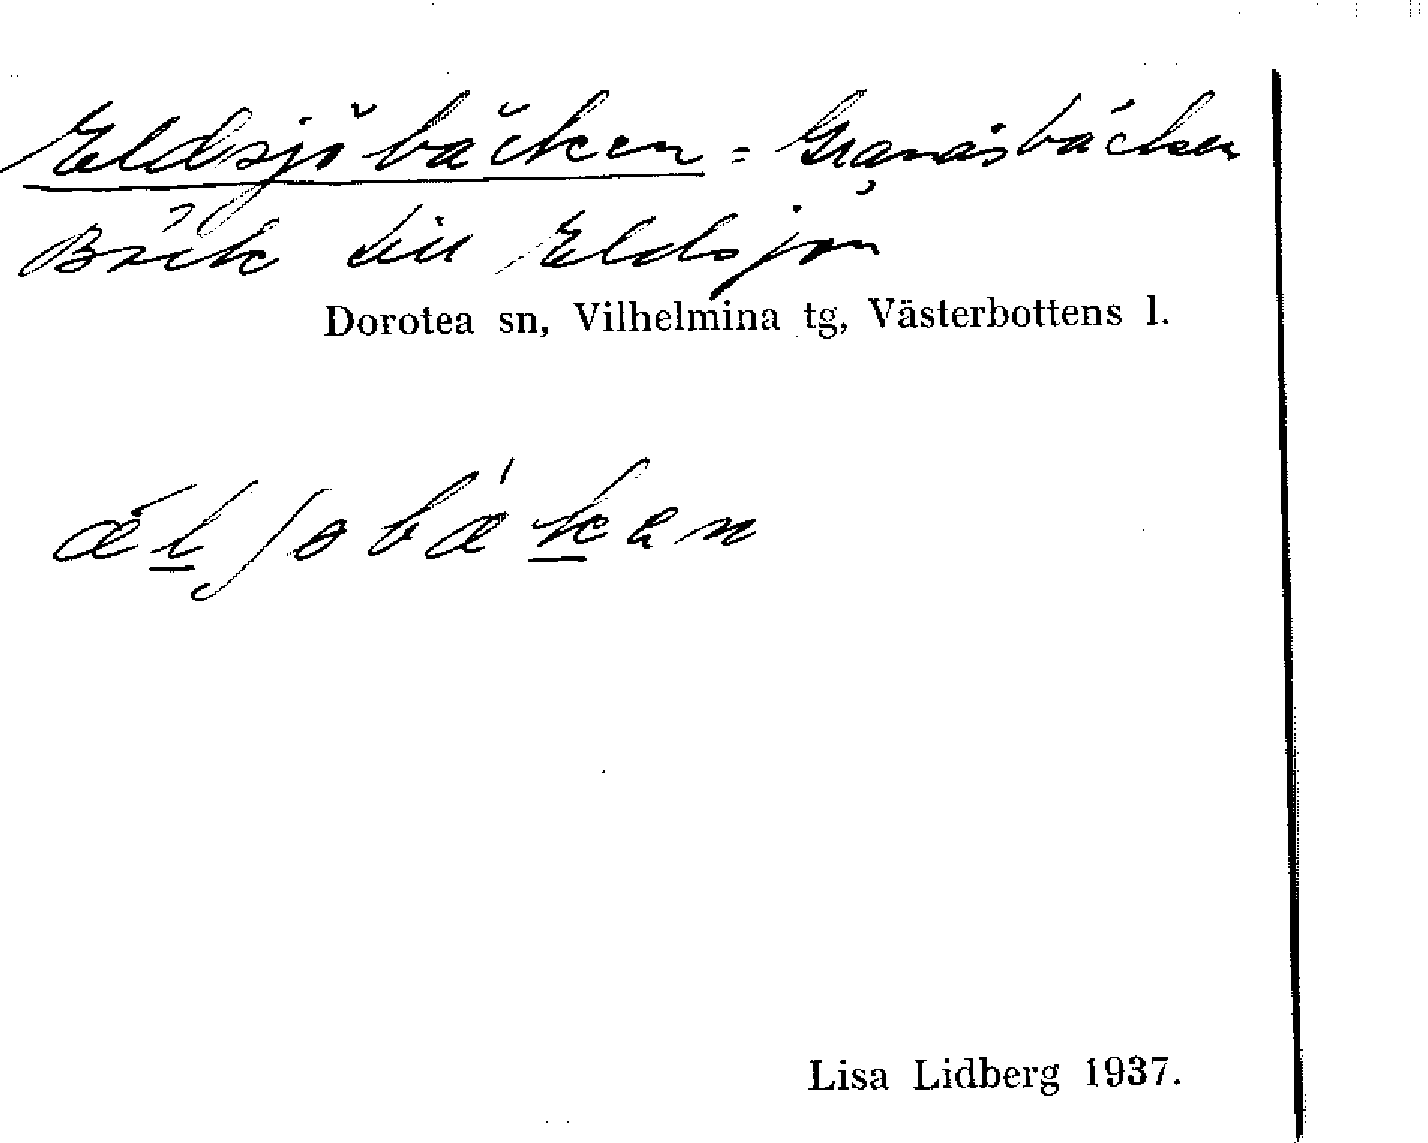 Eldsjöbäcken = Granåsbäcken
Bäck till Eldsjön
Dorotea sn, Vilhelmina tg, Västerbottens l.
Lisa Lidberg 1937.